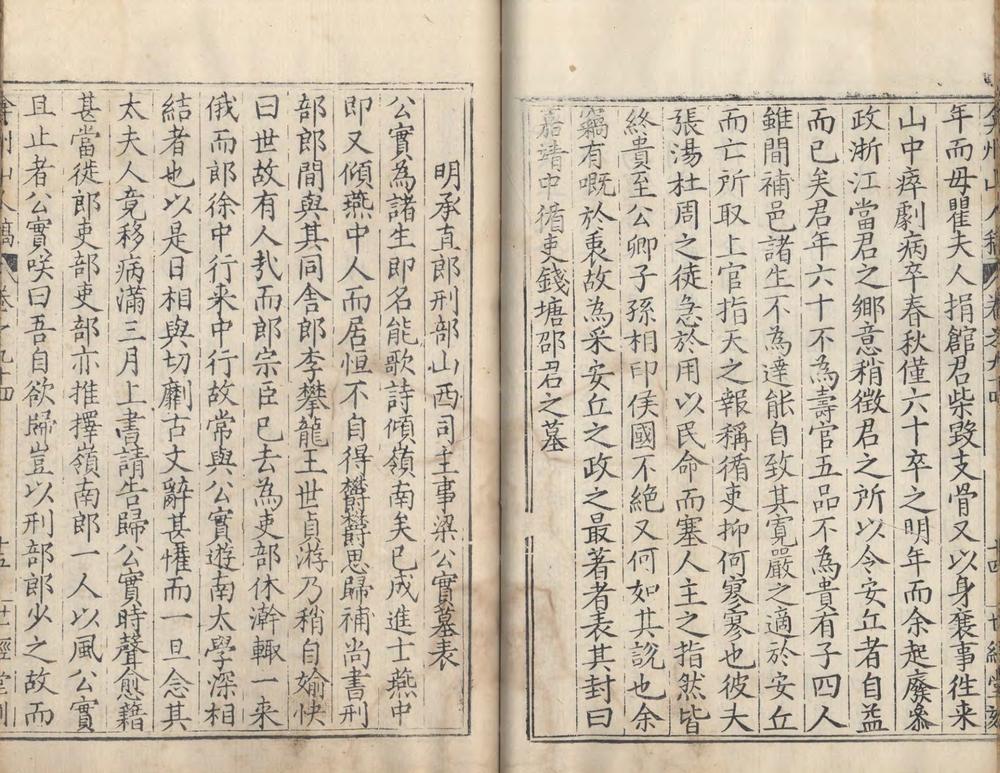 弇州山人稿 卷之九十四 十四 世經堂刻
年而母瞿夫人捐館君柴毀支骨又以身襄事徃来
山中瘁劇病卒春秋僅六十卒之明年而余起廢叅
政浙江當君之鄉意稍徴君之所以令安丘者自益
而已矣君年六十不為壽官五品不為貴有子四人
雖間補邑諸生不為達能自致其寛嚴之適於安丘
而亡所取上官指天之報稱循吏抑何寥寥也彼夫
張湯杜周之徒急於用以民命而塞人主之指然皆
終貴至公卿子孫相印侯國不絕又何如其說也余
竊有嘅於衷故為采安丘之政之最著者表其封曰
嘉靖中循吏錢塘邵君之墓
明承直郎刑部山西司主事梁公實墓表
公實為諸生即名能歌詩傾嶺南矣已成進士燕中
即又傾燕中人而居恒不自得欝欝思歸補尚書刑
部郎間與其同舍郎李攀龍王世貞游乃稍自媮快
曰世故有人㢤而郎宗臣已去為吏部休澣輙一来
俄而郎徐中行来中行故常與公實遊南太學深相
結者也以是日相與切劘古文辭甚懽而一旦念其
太夫人竟移病滿三月上書請告歸公實時聲愈藉
甚當徙郎吏部吏部亦推擇嶺南郎一人以風公實
且止者公實咲曰吾自欲歸豈以刑部郎少之故而
弇州山人稿 卷之九十四 十五 世經堂刻